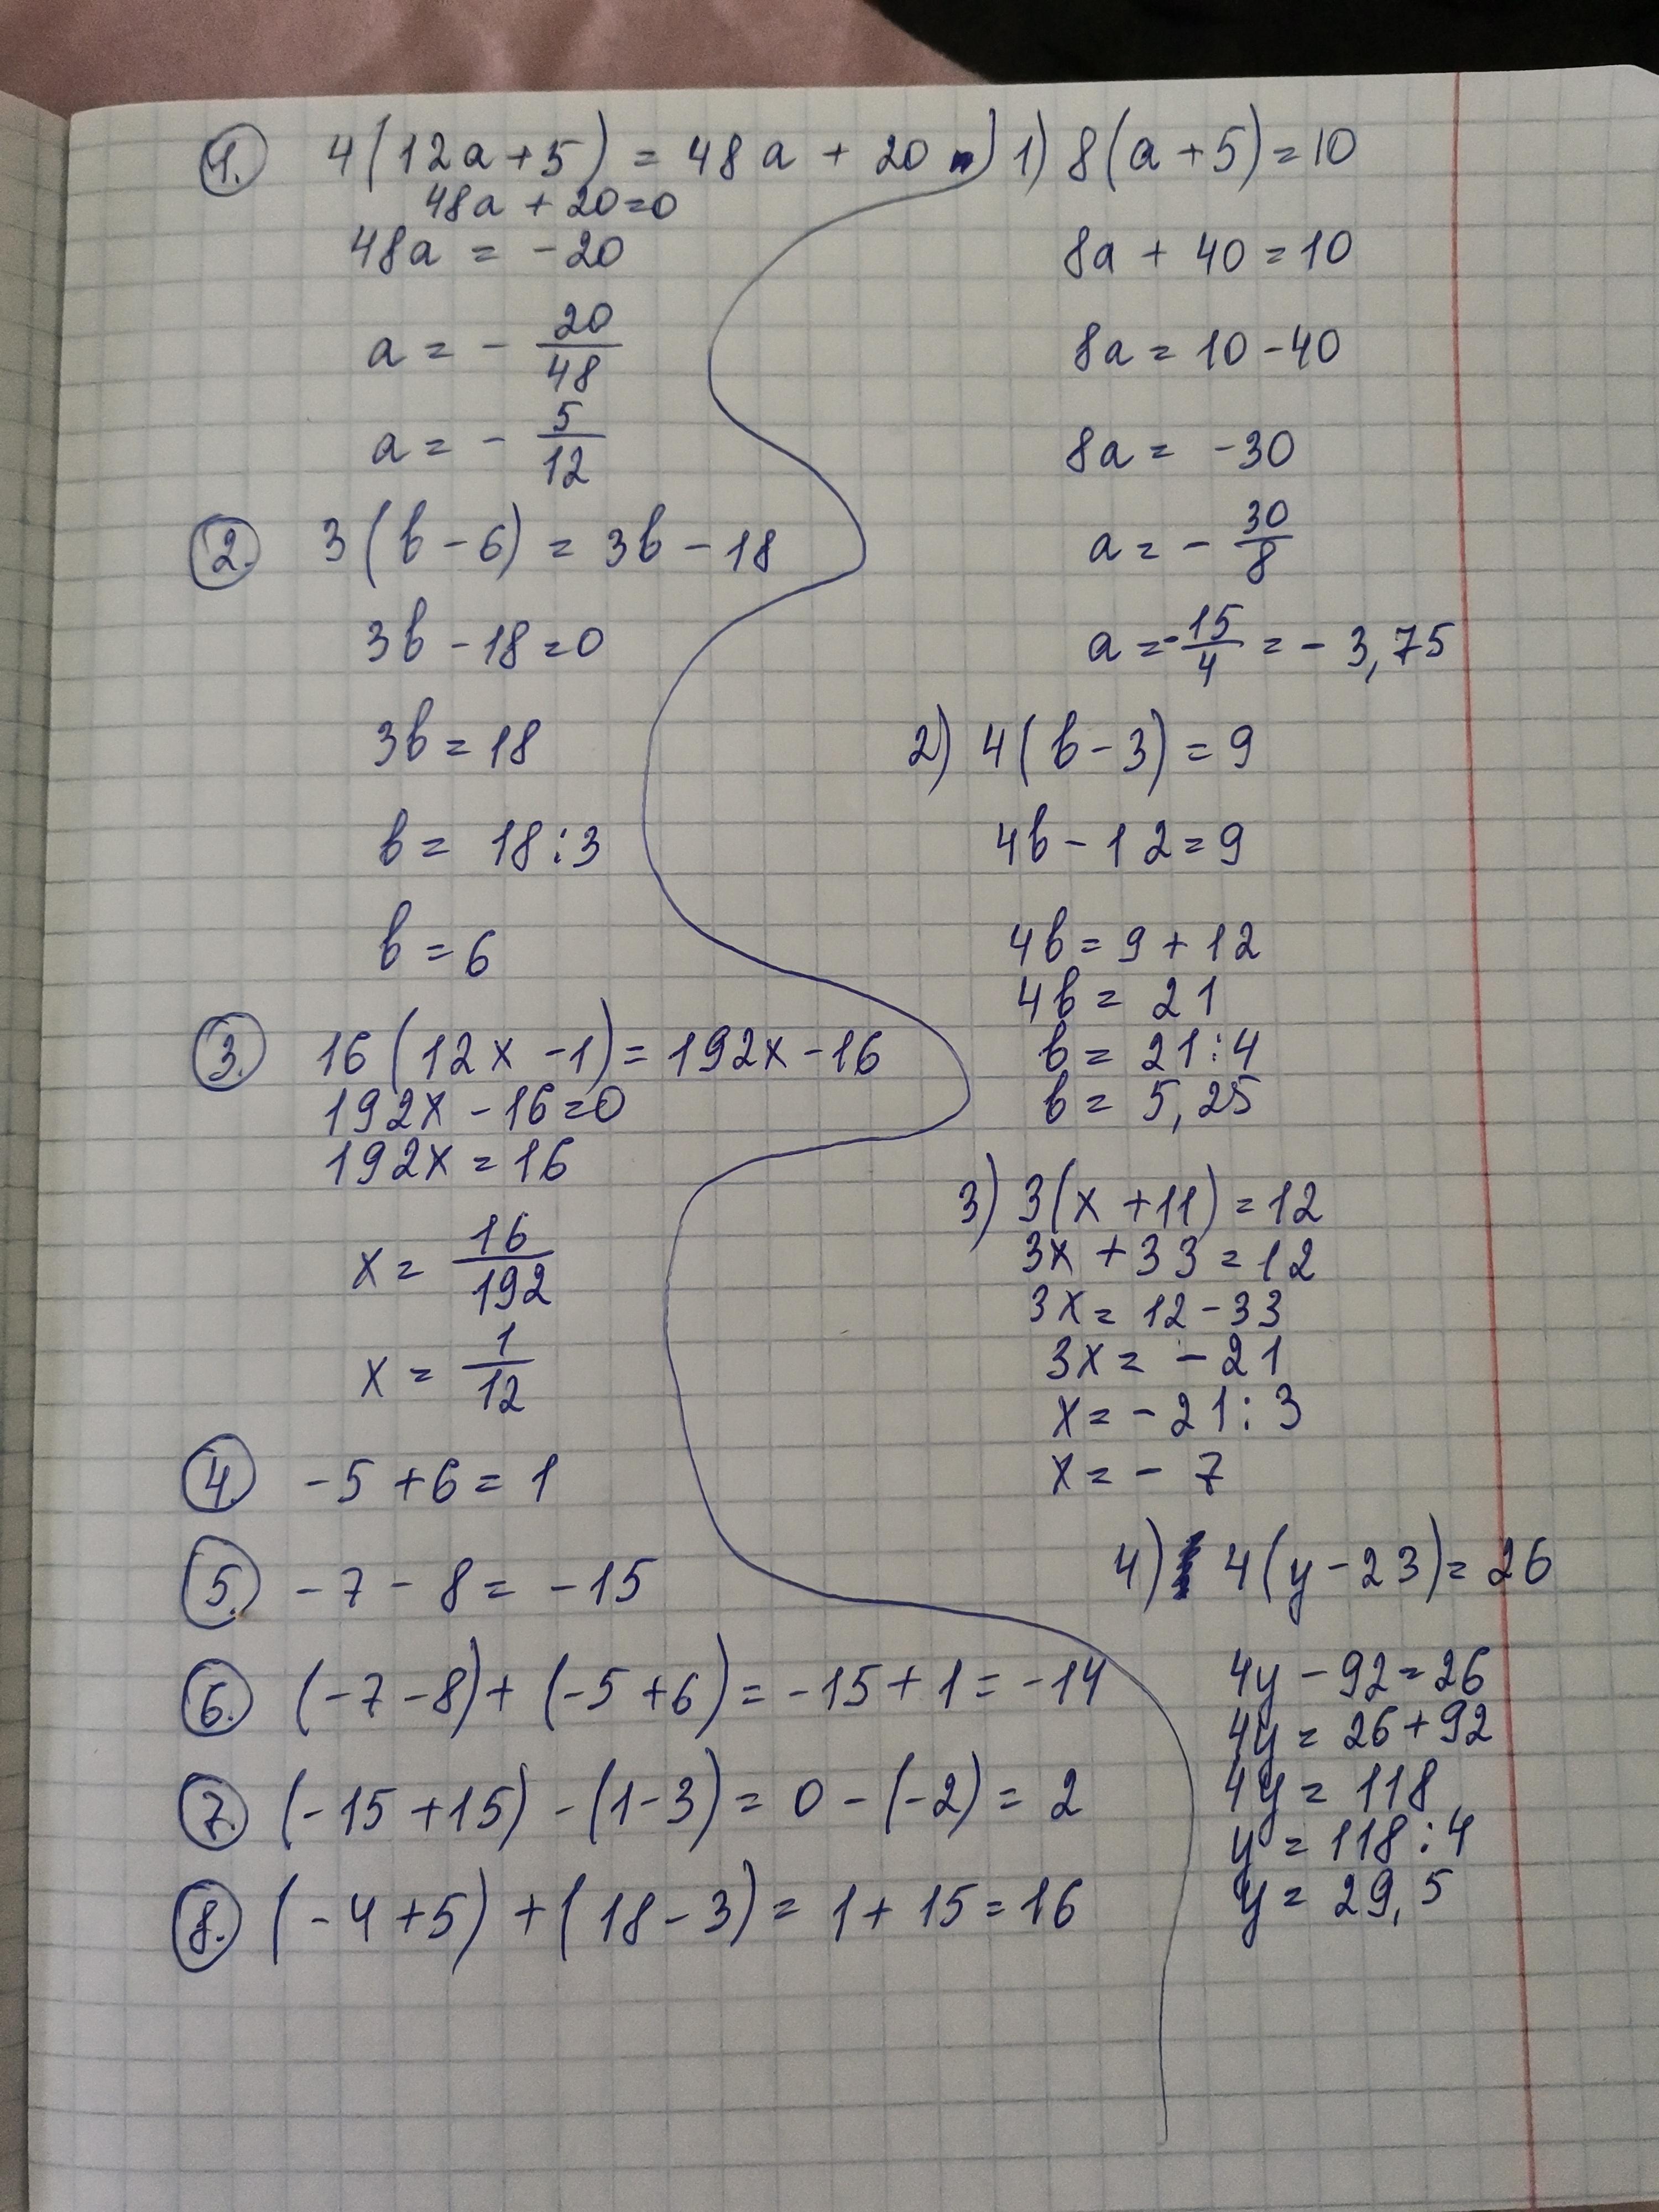 1. 4(12a+5) = 48a + 20
48a + 20=0
48a = -20
a = - 20/48
a = - 5/12
2. 3(b-6) = 3b-18
3b-18=0
3b=18
b= 18:3
b=6
3. 16(12x-1)=192x-16
192x-16=0
192x=16
x= 16/192
x= 1/12
4. -5+6=1
5. -7-8=-15
6. (-7-8)+(-5+6)=-15+1=-14
7. (-15+15)-(1-3)=0-(-2)=2
8. (-4+5)+(18-3)=1+15=16
1) 8(a+5)=10
8a+40=10
8a=10-40
8a=-30
a=- 30/8
a=- 15/4 =-3,75
2) 4(b-3)=9
4b-12=9
4b=9+12
4b=21
b=21:4
b=5,25
3) 3(x+11)=12
3x+33=12
3x=12-33
3x=-21
x=-21:3
x=-7
4) 4(y-23)=26
4y-92=26
4y=26+92
4y=118
y=118:4
y=29,5